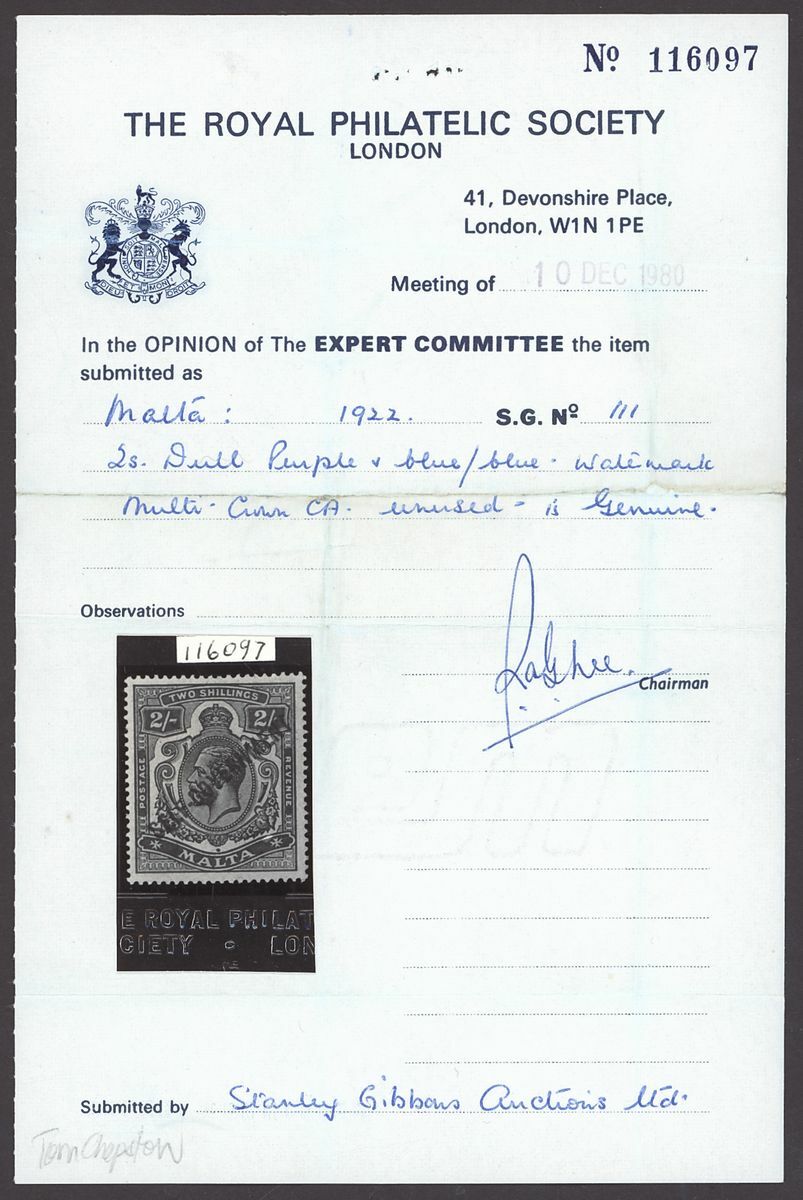 Nº 116097
THE ROYAL PHILATELIC SOCIETY
LONDON
41, Devonshire Place,
London, W1N 1PE
Meeting of 10 DEC 1980
In the OPINION of The EXPERT COMMITTEE the item
submitted as
Malta: 1922. S.G. Nº 111
2s. Dull Purple & blue/blue. Watermark
Multi. Crown CA. unused - is Genuine.
Observations
116097
TWO SHILLINGS
2/- 2/-
POSTAGE
REVENUE
MALTA
E ROYAL PHILAT
CIETY LON
Chairman
Submitted by Stanley Gibbons Auctions Ltd.
Tom Chepstow